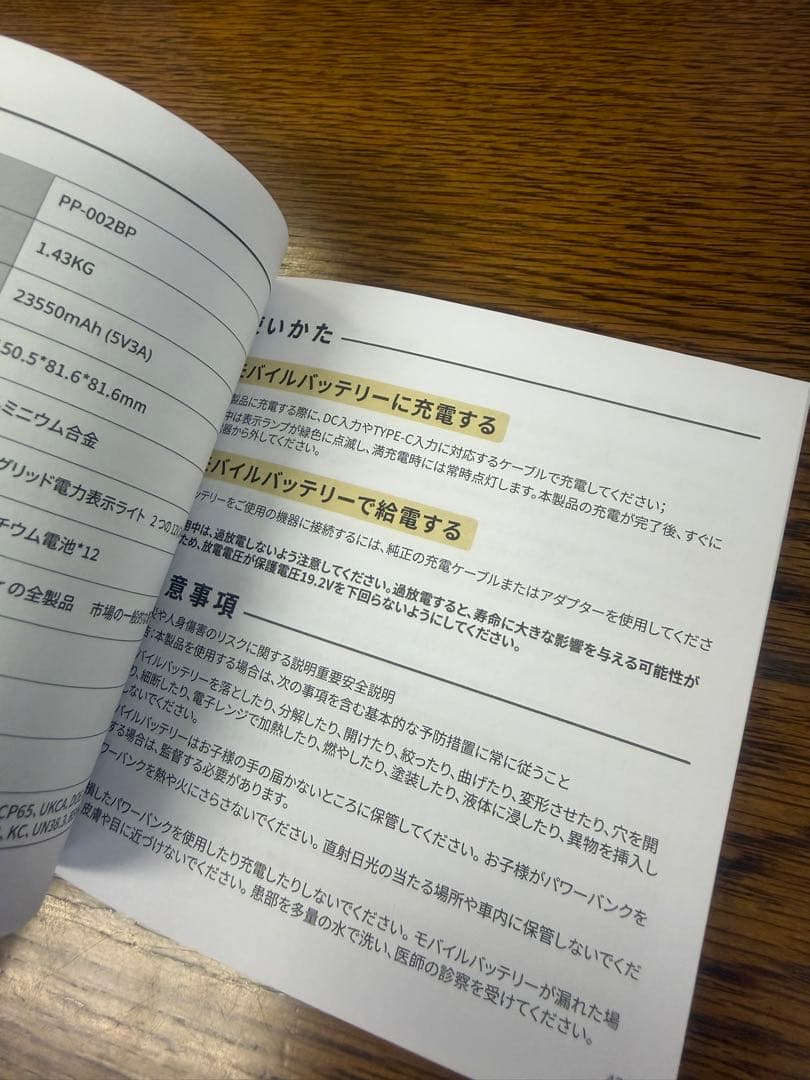 PP-002BP
1.43KG
23550mAh (5V3A)
50.5*81.6*81.6mm
ミニウム合金
グリッド電力表示ライト 2つの
チウム電池*12
の全製品 市場の一般的な
CP65, UKCA,
KC, UN38.3,
いかた
モバイルバッテリーに充電する
製品に充電する際に、DC入力やTYPE-C入力に対応するケーブルで充電してください；
中は表示ランプが緑色に点滅し、満充電時には常時点灯します。本製品の充電が完了後、すぐに
器から外してください。
モバイルバッテリーで給電する
ッテリーをご使用の機器に接続するには、純正の充電ケーブルまたはアダプターを使用してくださ
用中は、過放電しないよう注意してください。過放電すると、寿命に大きな影響を与える可能性が
ため、放電電圧が保護電圧19.2Vを下回らないようにしてください。
意事項
や人身傷害のリスクに関する説明重要安全説明
告：本製品を使用する場合は、次の事項を含む基本的な予防措置に常に従うこと
バイルバッテリーを落としたり、分解したり、開けたり、絞ったり、曲げたり、変形させたり、穴を開
り、細断したり、電子レンジで加熱したり、燃やしたり、塗装したり、液体に浸したり、異物を挿入し
しないでください。
バイルバッテリーはお子様の手の届かないところに保管してください。お子様がパワーバンクを
する場合は、監督する必要があります。
ワーバンクを熱や火にさらさないでください。直射日光の当たる場所や車内に保管しないでくだ
損したパワーバンクを使用したり充電したりしないでください。モバイルバッテリーが漏れた場
皮膚や目に近づけないでください。患部を多量の水で洗い、医師の診察を受けてください。